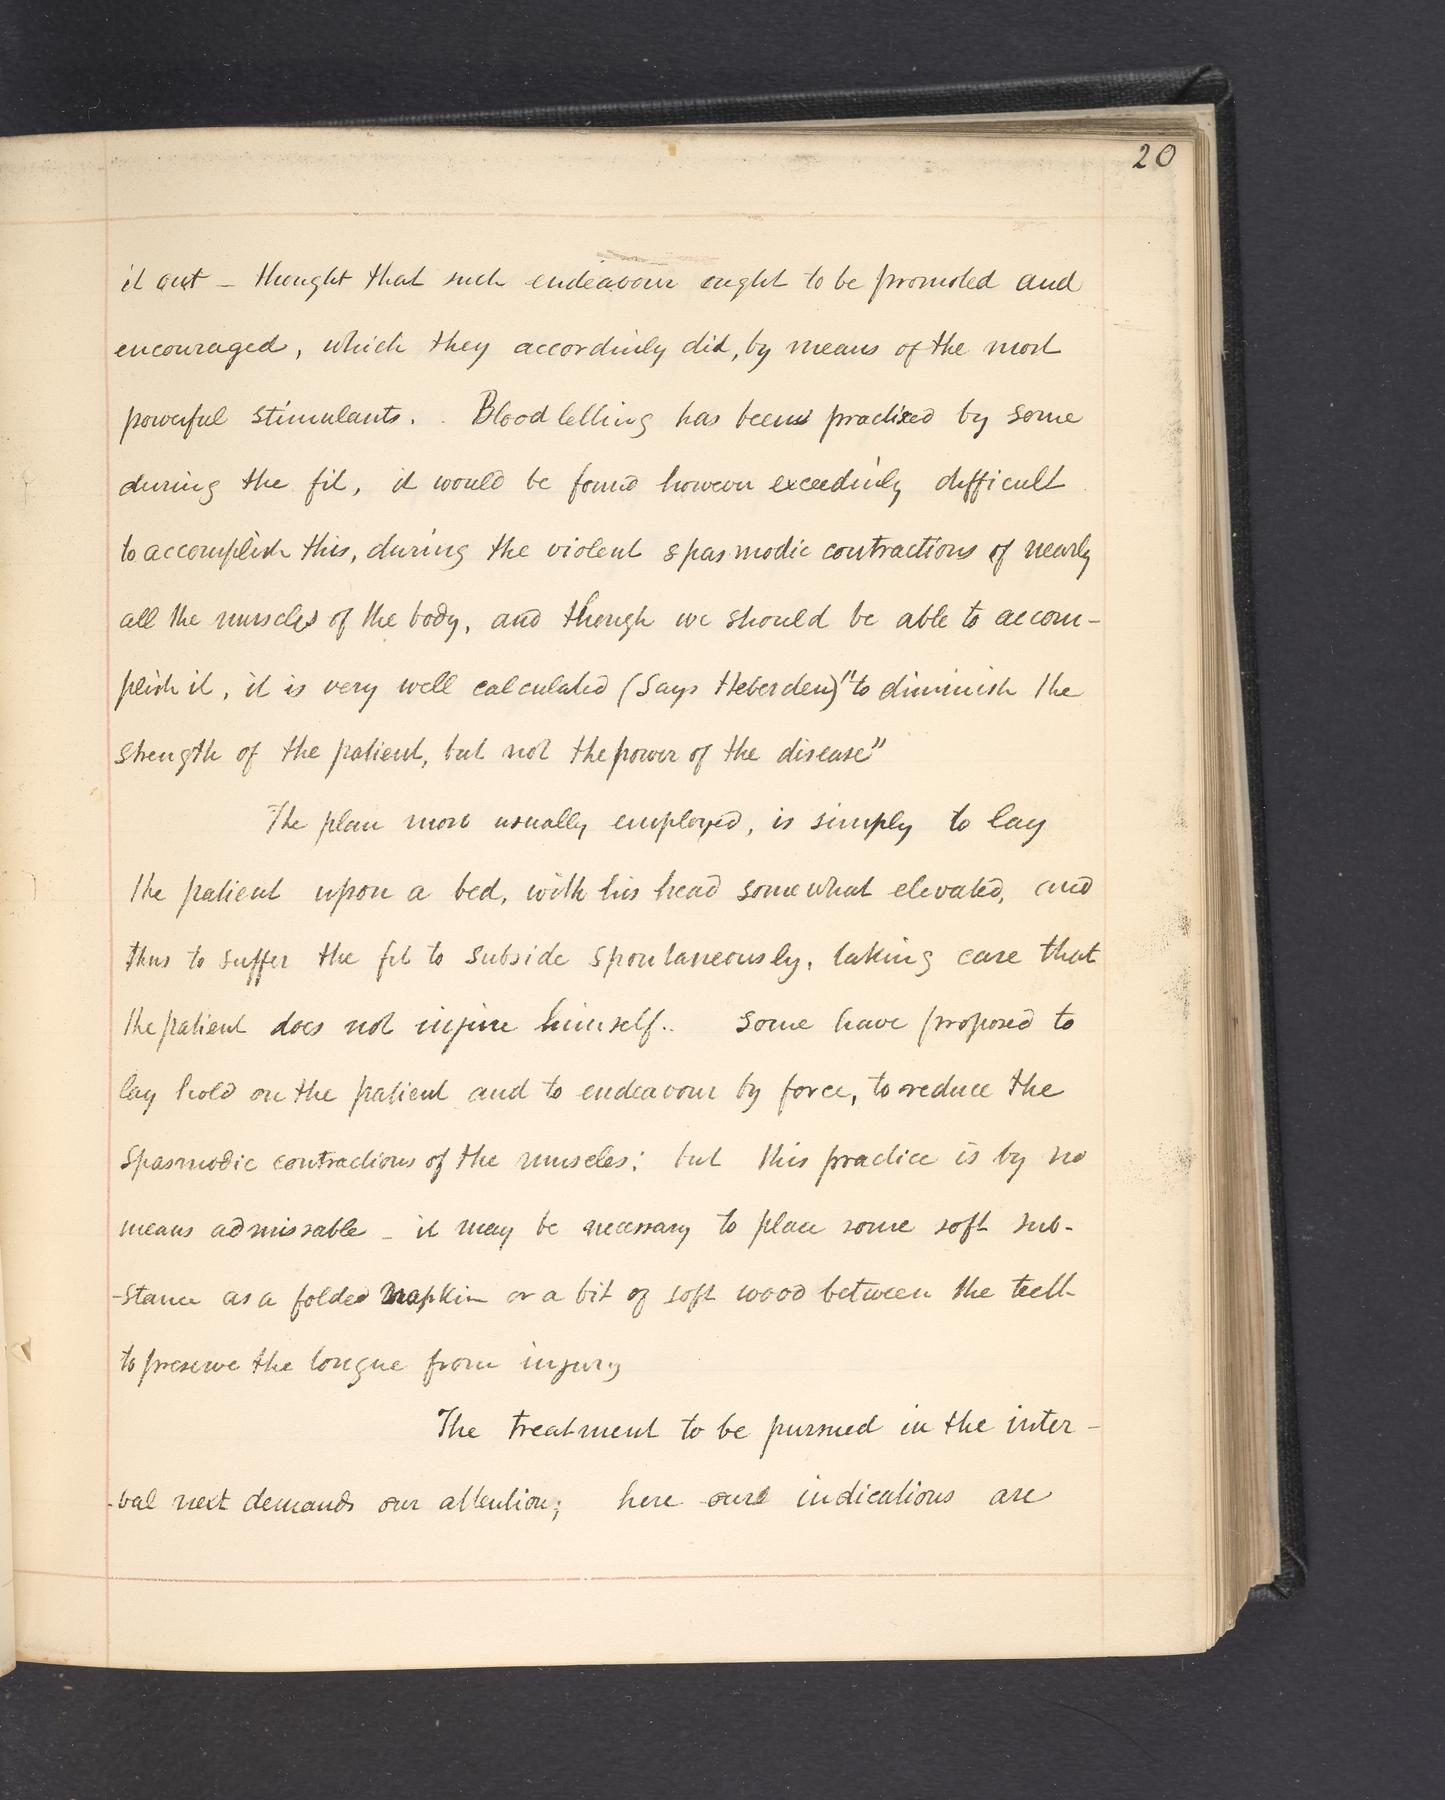 20
it out - thought that such endeavour ought to be promoted and
encouraged, which they accordinly did, by means of the most
powerful stimulants. . Bloodletting has been practised by some
during the fit, it would be found however exceedinly difficult
to accomplish this, during the violent spasmodic contractions of nearly
all the muscles of the body, and though we should be able to accom-
plish it, it is very well calculated (says Heberden) "to diminish the
strength of the patient, but not the power of the disease"
The plan most usually employed, is simply to lay
the patient upon a bed, with his head somewhat elevated, and
thus to suffer the fit to subside spontaneously, taking care that
the patient does not injure himself.. Some have proposed to
lay hold on the patient and to endeavour by force, to reduce the
spasmodic contractions of the muscles; but this practice is by no
means admissable - it may be necessary to place some soft sub-
-stance as a folded napkin or a bit of soft wood between the teeth
to preserve the tongue from injury
The treatment to be pursued in the inter-
-val next demands our attention; here our indications are